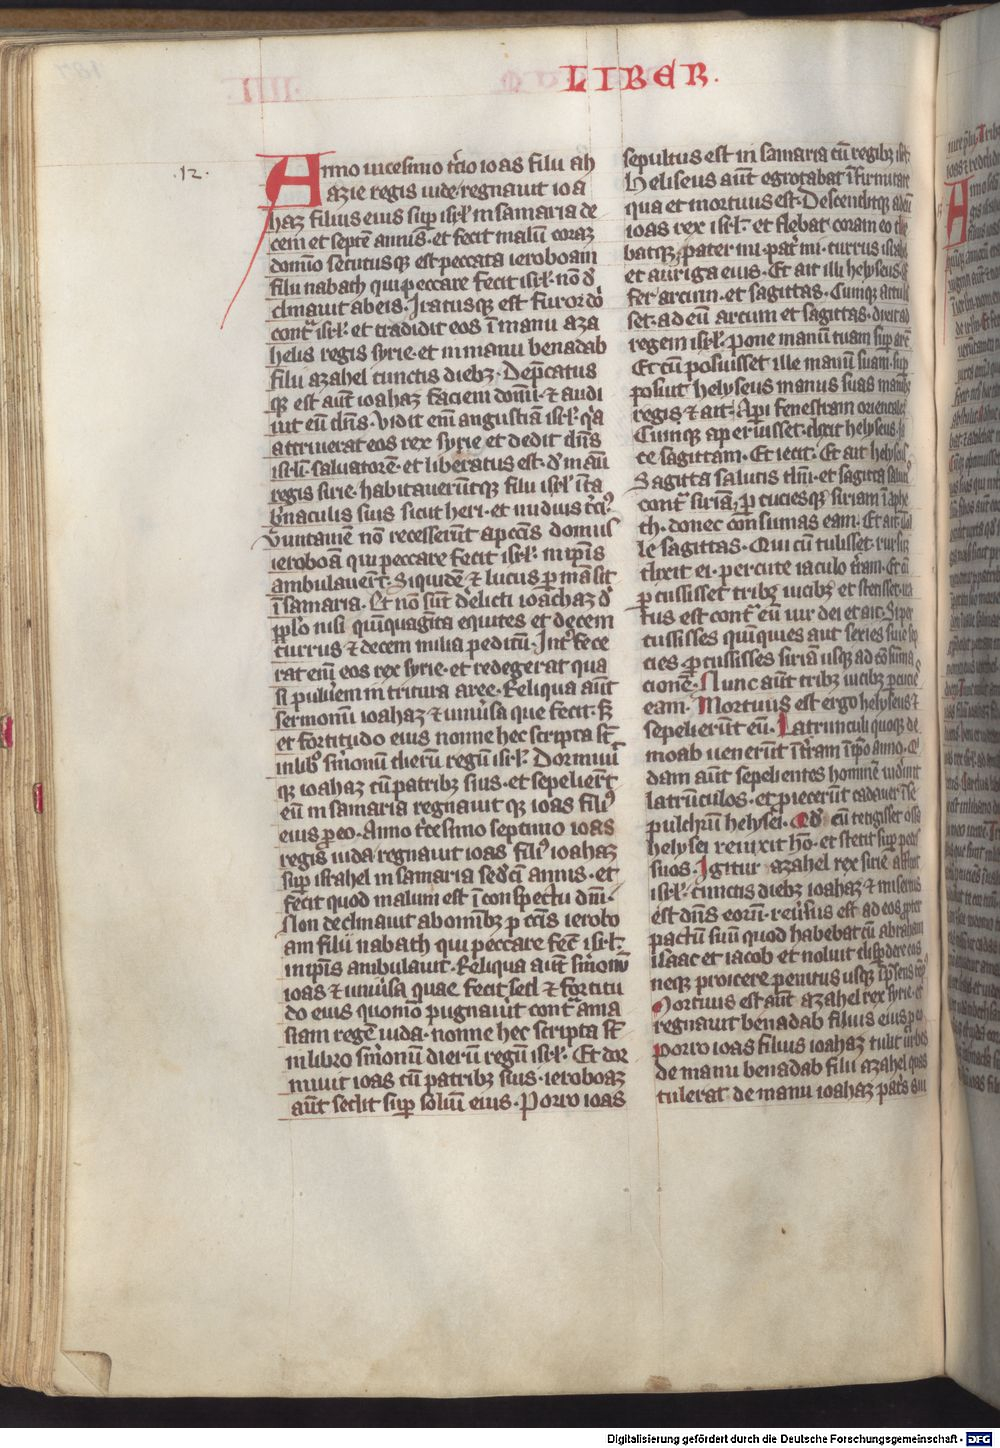 LIBER.
.12.
Anno uicesimo t͛cio ioas filii ah
azie regis iude regnauit ioa
haz filius eius suꝑ isrl̕ in samaria de
cem et septē annis · et fecit malū coraꝫ
domino secutusqꝫ est peccata ieroboam
filii nabath qui peccare fecit isrl̕ · nō d̄
clinauit ab eis · Iratusqꝫ est furor dn̄i
cont͛ isrl̕ · et tradidit eos ī manu aza
helis regis syrie · et in manu benadab
filii azahel cunctis diebꝫ · Dep̄catus
qꝫ est aut̄ ioahaz faciem domī · ⁊ audi
iut eū dn̄s · Vidit em̄ angustiā isrl̕ · q͛a
attriuerat eos rex syrie et dedit dn̄s
isrl̕ · saluatorē · et liberatus est · d̄ manu
regis sirie · habitauerūtqꝫ filii isrl̕ ī ta
b͛naculis suis sicut heri · et nudius t͛ciꝰ
Veruntamē nō recesserunt a pcc̄is domus
ieroboā qui peccare fecit isrl̕ · in ip̄is
ambulauer̄t · Siquidē ⁊ lucus ꝑmāsit
ī samaria · Et nō sūt derelicti ioachaz d̄
pplo nisi quīquagīta equites et decem
currus ⁊ decem milia peditū · Int͛fece
rat enī eos rex syrie · et redegerat qua
si puluerem in tritura aree · Reliqua aūt
sermonū ioahaz ⁊ uniu͛sa que fecit · s̄
et fortitudo eius nonne hec scripta st̄
in lib͛ s͛monū dierū regū isrl̕ · Dormiuit
qꝫ ioahaz cū patribꝫ suis · et sepelier̄t
eū in samaria regnauit qꝫ ioas filiꝰ
eius ꝓ eo · Anno t͛cesimo septimo ioas
regis iuda regnauit ioas filiꝰ ioahaz
suꝑ israhel in samaria sedecī annis · et
fecit quod malum est ī conspectu dnī ·
Non declinauit ab omībꝫ pcc̄is ierobo
am filii nabath qui peccare fec̄ isrl̕ ·
in ip̄is ambulauit · Reliqua aūt s͛monū
ioas ⁊ uniu͛sa quae fecit sed ⁊ fortitu
do eius quomō pugnauit cont͛ ama
siam regē iuda · nonne hec scripta st̄
in libro s͛monū dierū regū isrl̕ · Et dor
miuit ioas cū patribꝫ suis · ieroboaꝫ
aūt sedit suꝑ soliū eius · Porro ioas
sepultus est in samaria cū regibꝫ isrl̕
Heliseus aūt egrotabat īfirmitate
qua et mortuus est · Descenditqꝫ ad eū
ioas rex isrl̕ · et flebat coram eo dice
batqꝫ · pater mi · pat͛ mi · currus israhel
et auriga eius · Et ait illi helyseus · af
fer arcum · et sagittas · Cumqꝫ attulis
set · ad eū arcum et sagittas · dixit ad
regem isrl̕ · pone manū tuam suꝑ arcū
Et cū posuisset ille manū suam · sup
posuit helyseus manus suas manibꝫ
regis ⁊ ait · Aperi fenestram orientalē
Cumqꝫ aperuisset · dixit helyseus · ia
ce sagittam · Et iecit · Et ait helyseus
Sagitta salutis dn̄i · et sagitta salutis
cont͛ siriā · ꝑcuciesqꝫ siriam ī aphe
th · donec consumas eam · Et ait · tol
le sagittas · Qui cū tulisset · rursuꝫ
dixit ei · percute iaculo t͛ram · Et cū
ꝑcussisset tribꝫ uicibꝫ et stetisset · ira
tus est cont͛ eū uir dei et ait · Si per
cussisses quīquies aut sexies siue sep
cies ꝑcussisses siriā usqꝫ ad cōsuma
cionē · Nunc aūt tribꝫ uicibꝫ ꝑcucies
eam · Mortuus est ergo helyseus ⁊
sepelierūt eū · Latrunculi quoqꝫ de
moab uenerūt ī t͛ram ī ip̄o anno · Q͛
dam aūt sepelientes hominē uiderūt
latrūculos · et piecerūt cadauer ī se
pulchrū helysei · Qd̄ cū tetigisset ossa
helysei reuixit hō · et stetit suꝑ pedes
suos · Igitur azahel rex sirie afflixit
isrl̕ · cunctis diebꝫ ioahaz ⁊ misertus
est dn̄s eorū · reu͛sus est ad eos ꝓpter
pactū suū quod habebat cū abraham
isaac et iacob et noluit disꝑdere eos
neqꝫ proicere penitus usqꝫ ī p̄sens tēpꝰ
Mortuus est aūt azahel rex syrie · et
regnauit benadab filius eius ꝓ eo
Porro ioas filius ioahaz tulit urbes
de manu benadab filii azahel quas
tulerat de manu ioahaz pat͛s sui
Digitalisierung gefördert durch die Deutsche Forschungsgemeinschaft - DFG